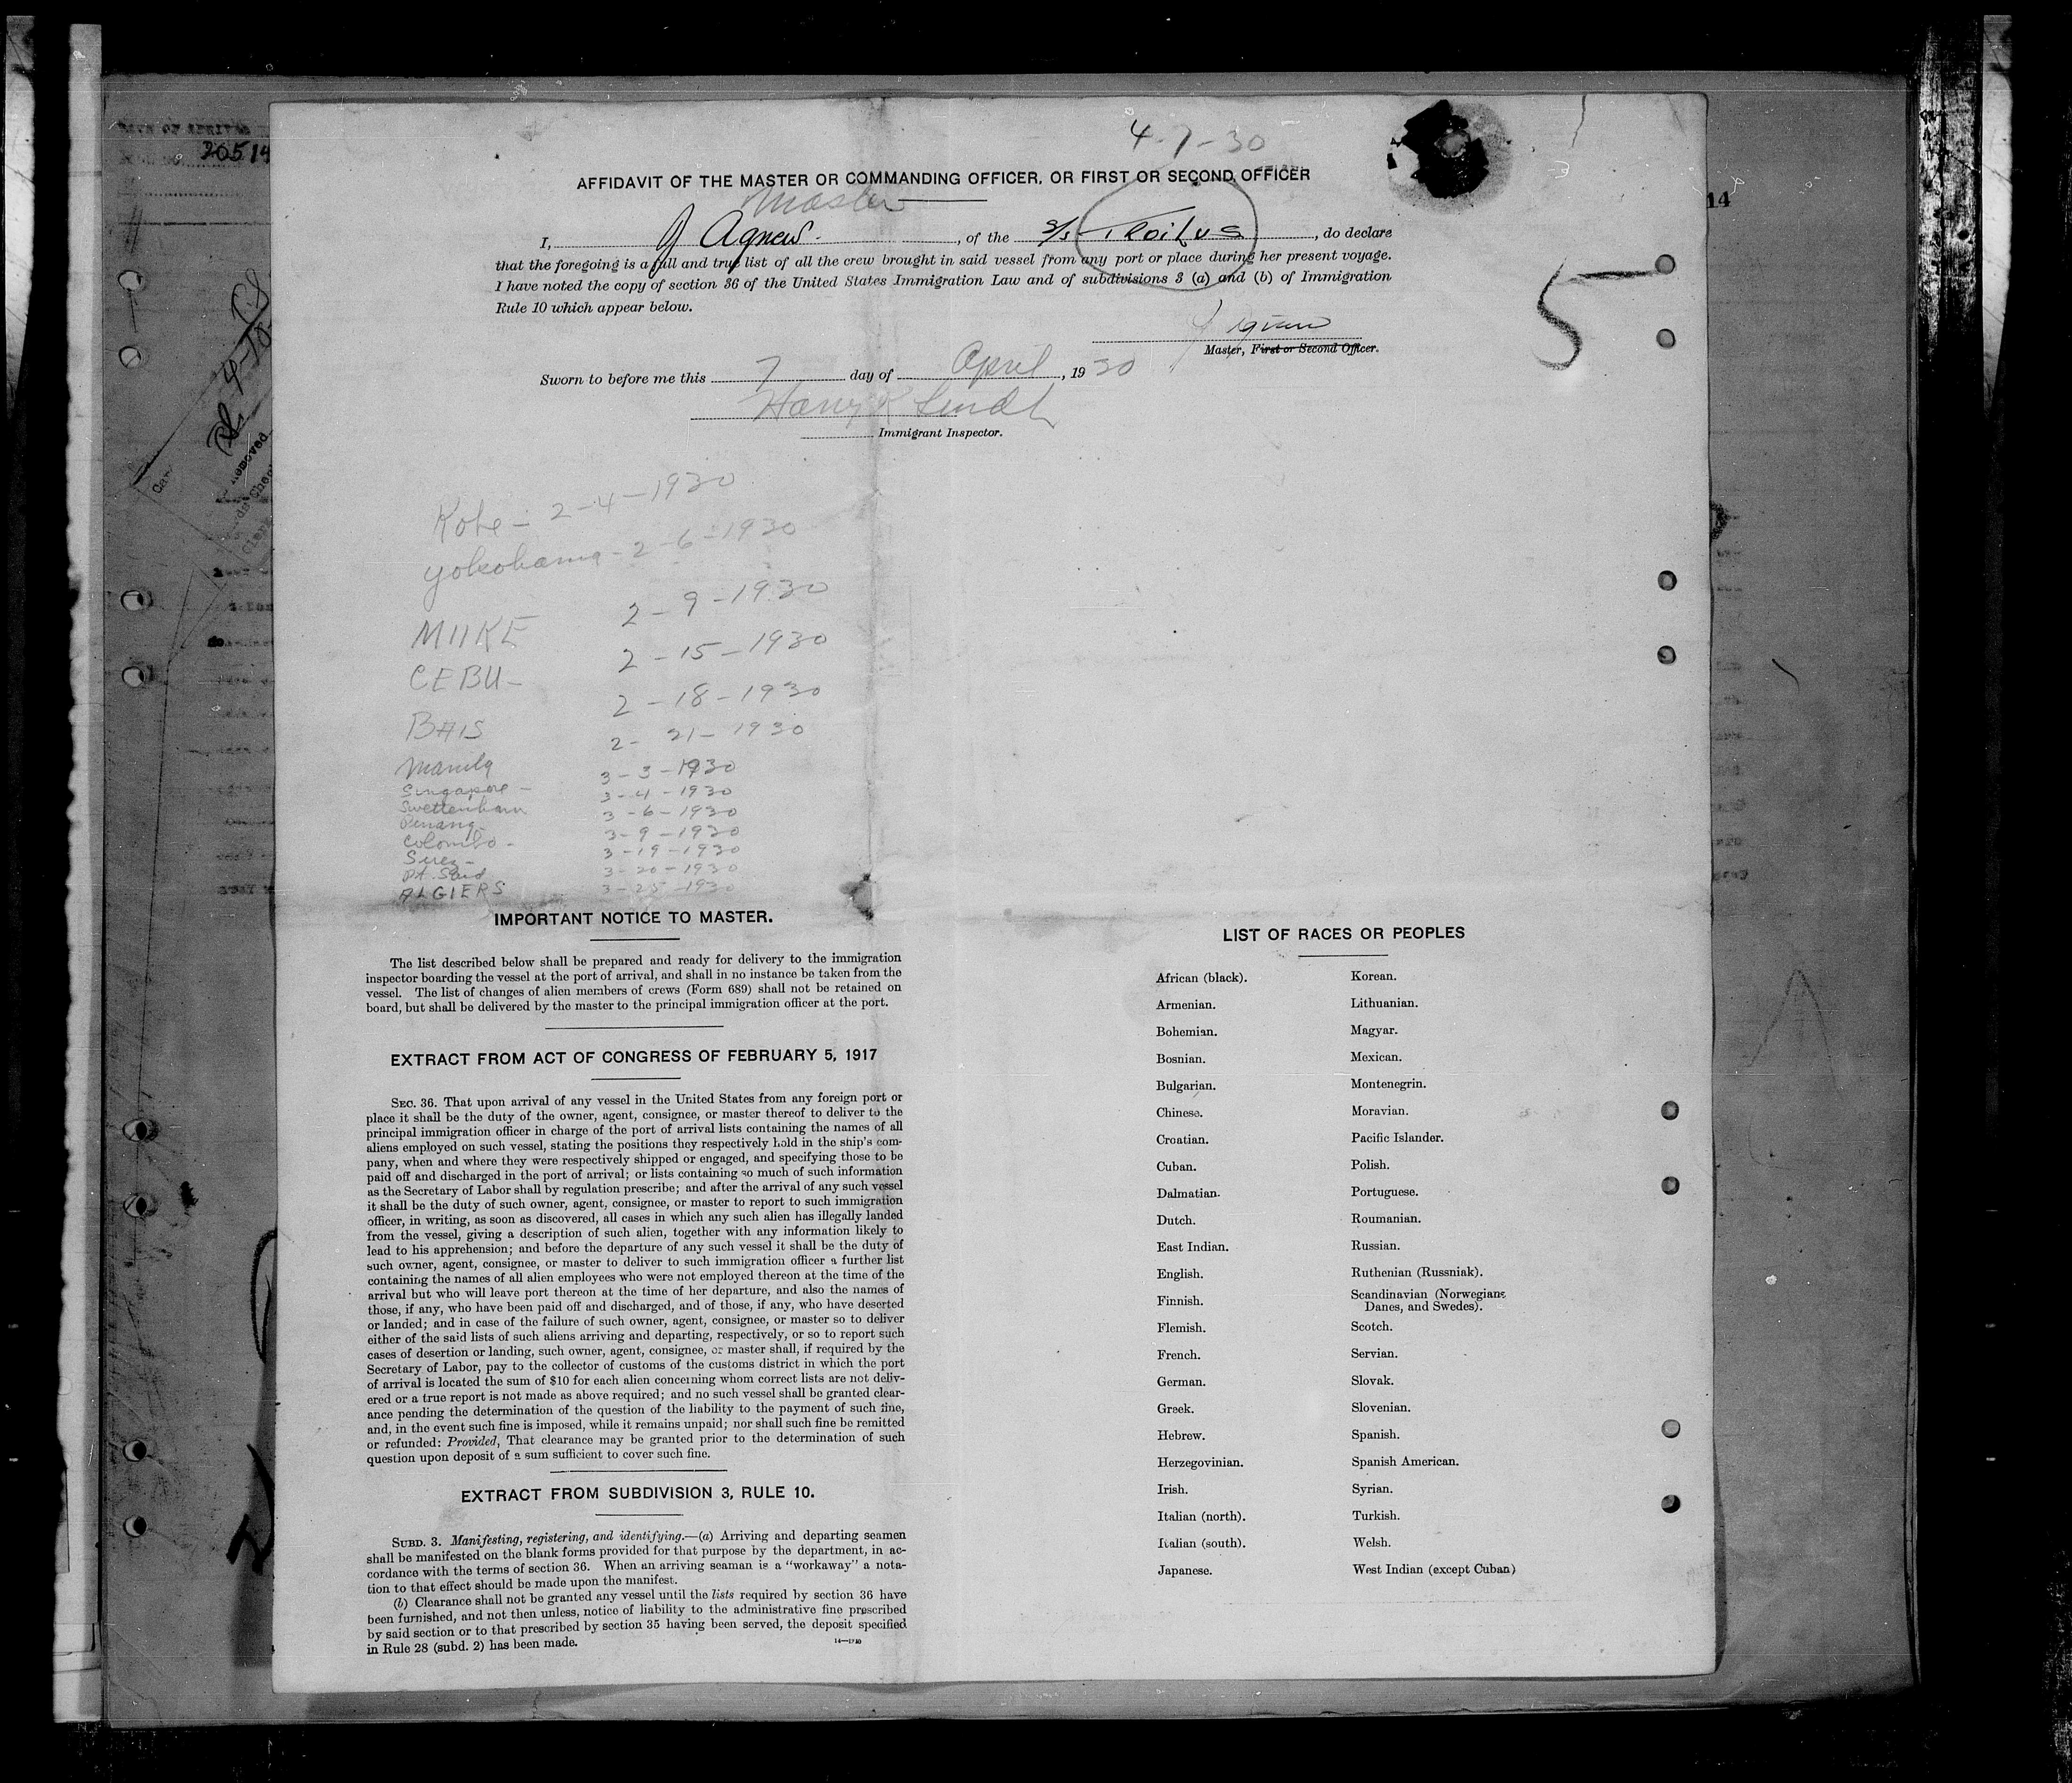 4-7-30
AFFIDAVIT OF THE MASTER OR COMMANDING OFFICER, OR FIRST OR SECOND OFFICER
Master
I, J Agnew. , of the S/S Troilus , do declare
that the foregoing is a full and true list of all the crew brought in said vessel from any port or place during her present voyage.
I have noted the copy of section 36 of the United States Immigration Law and of subdivisions 3 (a) and (b) of Immigration
Rule 10 which appear below.
5
J Agnew
Master, First or Second Officer.
Sworn to before me this 7 day of April , 19 30
Harry
Immigrant Inspector.
Kobe - 2-4-1930
Yokohama - 2-6-1930
MIIKE 2-9-1930
CEBU - 2-15-1930
BAIS 2-18-1930
Manila 2-21-1930
Singapore - 3-3-1930
Swettenham 3-4-1930
Penang 3-6-1930
Colombo - 3-9-1930
Suez - 3-19-1930
Pt. Said 3-20-1930
ALGIERS 3-25-1930
IMPORTANT NOTICE TO MASTER.
The list described below shall be prepared and ready for delivery to the immigration
inspector boarding the vessel at the port of arrival, and shall in no instance be taken from the
vessel. The list of changes of alien members of crews (Form 689) shall not be retained on
board, but shall be delivered by the master to the principal immigration officer at the port.
EXTRACT FROM ACT OF CONGRESS OF FEBRUARY 5, 1917
SEC. 36. That upon arrival of any vessel in the United States from any foreign port or
place it shall be the duty of the owner, agent, consignee, or master thereof to deliver to the
principal immigration officer in charge of the port of arrival lists containing the names of all
aliens employed on such vessel, stating the positions they respectively hold in the ship's com-
pany, when and where they were respectively shipped or engaged, and specifying those to be
paid off and discharged in the port of arrival; or lists containing so much of such information
as the Secretary of Labor shall by regulation prescribe; and after the arrival of any such vessel
it shall be the duty of such owner, agent, consignee, or master to report to such immigration
officer, in writing, as soon as discovered, all cases in which any such alien has illegally landed
from the vessel, giving a description of such alien, together with any information likely to
lead to his apprehension; and before the departure of any such vessel it shall be the duty of
such owner, agent, consignee, or master to deliver to such immigration officer a further list
containing the names of all alien employees who were not employed thereon at the time of the
arrival but who will leave port thereon at the time of her departure, and also the names of
those, if any, who have been paid off and discharged, and of those, if any, who have deserted
or landed; and in case of the failure of such owner, agent, consignee, or master so to deliver
either of the said lists of such aliens arriving and departing, respectively, or so to report such
cases of desertion or landing, such owner, agent, consignee, or master shall, if required by the
Secretary of Labor, pay to the collector of customs of the customs district in which the port
of arrival is located the sum of $10 for each alien concerning whom correct lists are not deliv-
ered or a true report is not made as above required; and no such vessel shall be granted clear-
ance pending the determination of the question of the liability to the payment of such fine,
and, in the event such fine is imposed, while it remains unpaid; nor shall such fine be remitted
or refunded: Provided, That clearance may be granted prior to the determination of such
question upon deposit of a sum sufficient to cover such fine.
EXTRACT FROM SUBDIVISION 3, RULE 10.
SUBD. 3. Manifesting, registering, and identifying.—(a) Arriving and departing seamen
shall be manifested on the blank forms provided for that purpose by the department, in ac-
cordance with the terms of section 36. When an arriving seaman is a "workaway" a nota-
tion to that effect should be made upon the manifest.
(b) Clearance shall not be granted any vessel until the lists required by section 36 have
been furnished, and not then unless, notice of liability to the administrative fine prescribed
by said section or to that prescribed by section 35 having been served, the deposit specified
in Rule 28 (subd. 2) has been made.
LIST OF RACES OR PEOPLES
African (black). Korean.
Armenian. Lithuanian.
Bohemian. Magyar.
Bosnian. Mexican.
Bulgarian. Montenegrin.
Chinese. Moravian.
Croatian. Pacific Islander.
Cuban. Polish.
Dalmatian. Portuguese.
Dutch. Roumanian.
East Indian. Russian.
English. Ruthenian (Russniak).
Finnish. Scandinavian (Norwegians,
Danes, and Swedes).
Flemish. Scotch.
French. Servian.
German. Slovak.
Greek. Slovenian.
Hebrew. Spanish.
Herzegovinian. Spanish American.
Irish. Syrian.
Italian (north). Turkish.
Italian (south). Welsh.
Japanese. West Indian (except Cuban)
20514
14